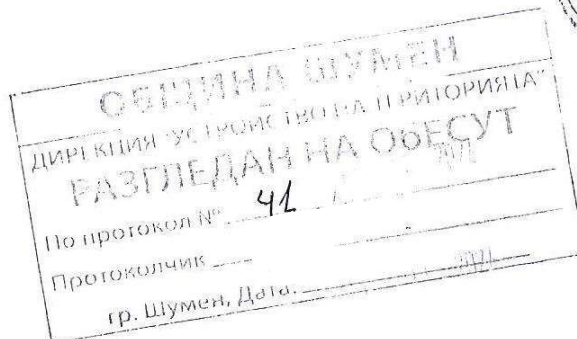 ОБЩИНА ШУМЕН
ДИРЕКЦИЯ "УСТРОЙСТВО НА ТЕРИТОРИЯТА"
РАЗГЛЕДАН НА ОбЕСУТ
По протокол № 41
Протоколчик
гр. Шумен, Дата: